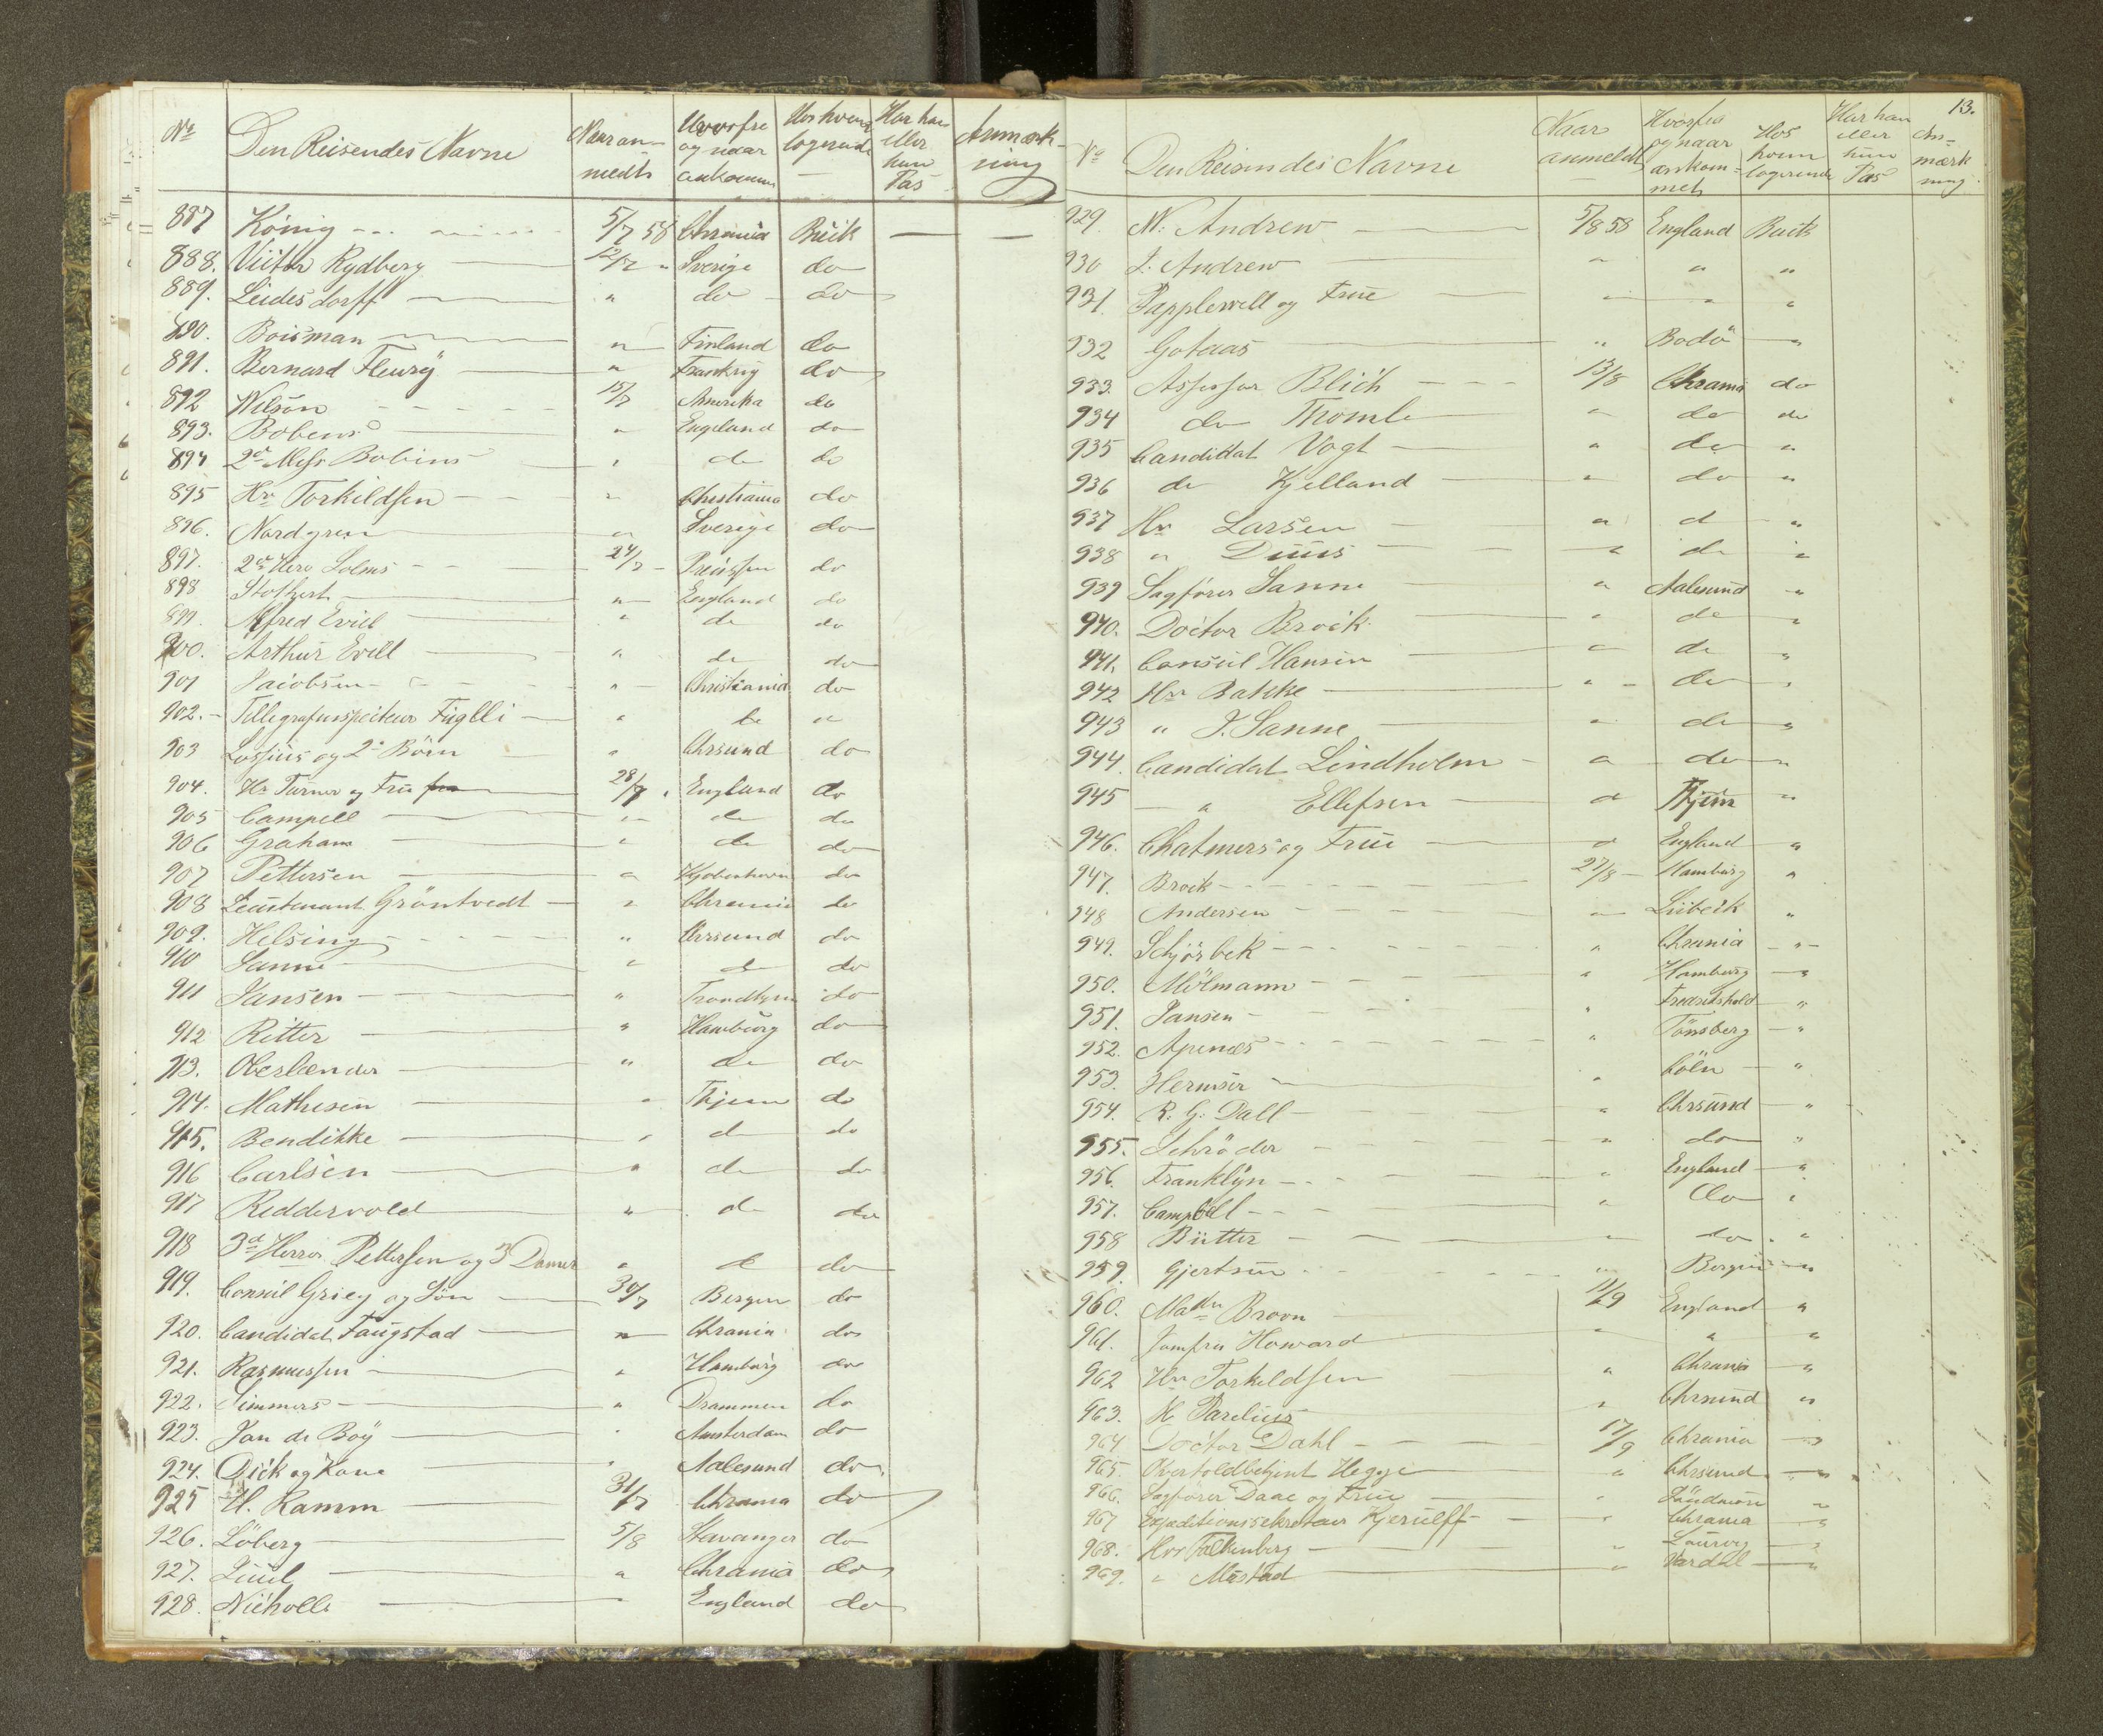 No Den Reisendes Navne Naar an- medt Hvorfra og naar ankommen Hos hvem logerende Har han eller hun Pas Anmærk- ning
887 König 5/7 58 Chrania Buck
888. Victor Rydberg 12/7 " Sverige do
889. Leidesdorff " do do
890. Boisman " Finland do
891. Bernard Fleury " Frankrig do
892 Wilson 15/7 Amerika do
893. Bobens " England do
894 2de Miss Bobins " do do
895 Hr Torkildsen " Christiania do
896. Nordgren " Sverige do
897. 2de Herr Solms 24/7 Preussen do
898 Stothert " England do
899. Alfred Evill " do do
900. Arthur Evill " do do
901 Jacobsen " Christiania do
902. Tellegrafinspecteur Fuglli " do "
903 Lossius og 2de Börn " Chrsund do
904. Hr Turner og Frue 28/7 " England do
905 Campell " do do
906 Graham " do do
907 Pettersen " Kjobenhavn do
908 Lieutenant Gröntvedt " Chrania do
909. Helsing " Chrsund do
910 Sanne " do do
911 Jansen " Trondhjem do
912 Ritter " Hamburg do
913. Oberlænder " do do
914. Mathesen " Thjem do
915. Bendikke " do do
916 Carlsen " do do
917 Reddervold " do do
918 3de Herrer Pettersen og 3 Damer " do do
919. Consul Grieg og Sön 30/7 Bergen do
920. Candidat Faugstad " Chrania do
921. Rasmussen " Hamburg do
922. Simmers " Drammen do
923. Jan de Boÿ " Amsterdam do
924. Dick og Kone " Aalesund do
925 H. Ramm 31/7 Chrania do
926. Löberg 5/8 Stavanger do
927. Juul " Chrania do
928. Nicholls " England do
13.
No Den Reisendes Navne Naar anmeldt Hvorfra og naar ankom- met Hos hvem logerende Har han eller hun Pas An- mærk ning
929. N. Andrew 5/8 58 England Buck
930 J. Andrew " " "
931. Papplewell og Frue " " "
932 Gotaas " Bodö "
933. Assessor Blich 13/8 Chrania do
934 do Thomle " do do
935 Candidat Vogt " do "
936 do Kjelland " do "
937 Hr Larsen " d "
938 " Duus " do "
939 Sagförer Sanne " Aalesund "
940. Doctor Brock " do "
941. Consul Hansen " do "
942 Hr Bakke " do "
943 " J. Sanne " do "
944. Candidat Lindholm " do "
945 " Ellefsen " Thjem "
946. Chalmers og Frue " England "
947. Brock 27/8 Hamburg "
948 Andersen " Lübeck "
949. Schjörbek " Chrania "
950. Mölmann " Hamburg "
951. Jansen " Fredrikshald "
952. Apenæs " Tönsberg "
953. Hermser " Cöln "
954. R. G. Dall " Chrsund "
955. Schröder " do "
956. Franklÿn " England "
957. Campbell " do "
958 Butter " do "
959. Gjertsen " Bergen "
960. Madm Broon 11/9 England "
961. Jomfru Howard " " "
962 Hr Torkeldsen " Chrania "
963. H. Parelius " Chrsund "
964 Doctor Dahl 17/9 Chrania "
965. Overtoldbetjent Hegge " Chrsund "
966. Sagförer Daae og Frue " Söndmöre "
967 Expeditionssekretair Kjerulff " Chrania "
968. Herr Falkenberg " Laurvig "
969. " Mustad " Vardal "